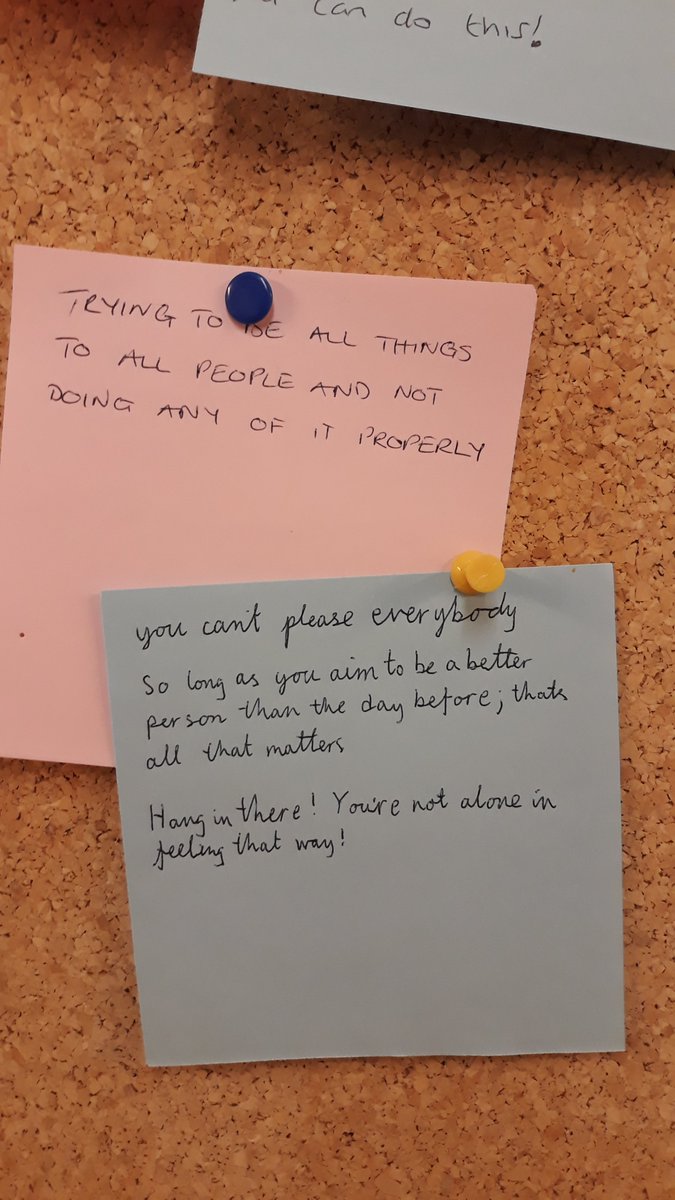 can do this!
TRYING TO BE ALL THINGS
TO ALL PEOPLE AND NOT
DOING ANY OF IT PROPERLY
you can't please everybody
So long as you aim to be a better
person than the day before; thats
all that matters
Hang in there! You're not alone in
feeling that way!